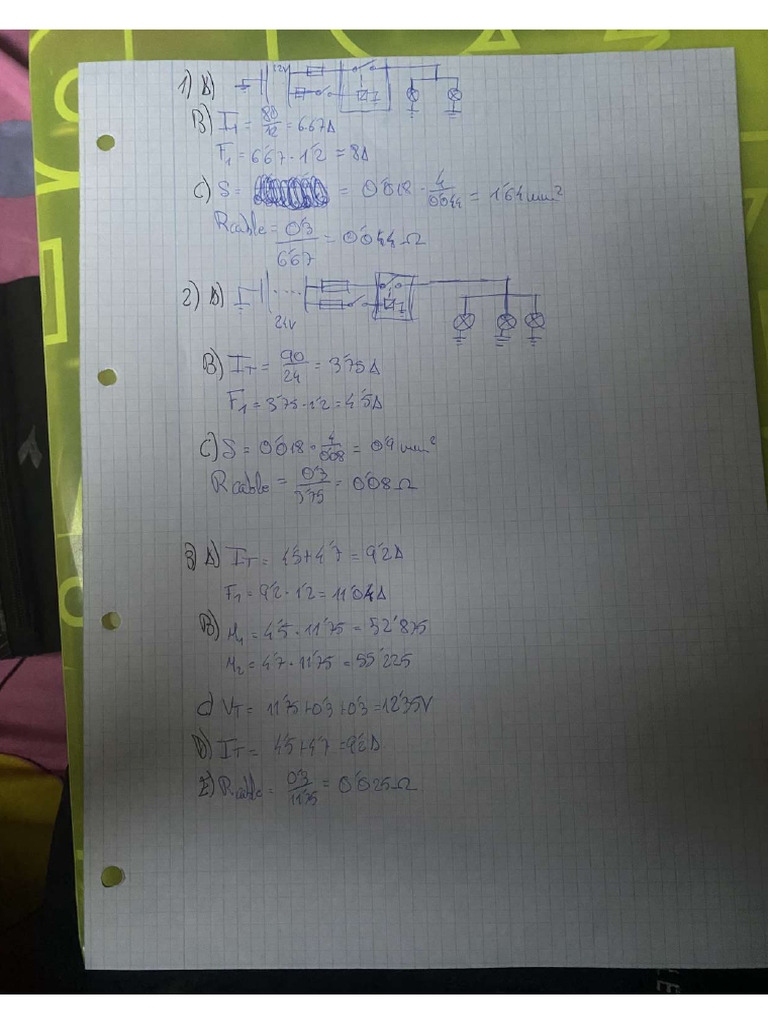 1) A) 12V
B) I₁ = 80/12 = 6'67A
F₁ = 6'67 · 1'2 = 8A
C) S = = 0'018 · 4/0'044 = 1'64 mm²
Rcable = 0'3/6'67 = 0'044 Ω
2) A) 24V
B) I_T = 90/24 = 3'75A
F₁ = 3'75 · 1'2 = 4'5A
C) S = 0'018 · 4/0'08 = 0'9 mm²
Rcable = 0'3/3'75 = 0'08 Ω
3) A) I_T = 4'5 + 4'7 = 9'2A
F₁ = 9'2 · 1'2 = 11'04A
B) M₁ = 4'5 · 11'75 = 52'875
M₂ = 4'7 · 11'75 = 55'225
C) V_T = 11'75 + 0'3 + 0'3 = 12'35V
D) I_T = 4'5 + 4'7 = 9'2A
E) Rcable = 0'3/11'75 = 0'025 Ω